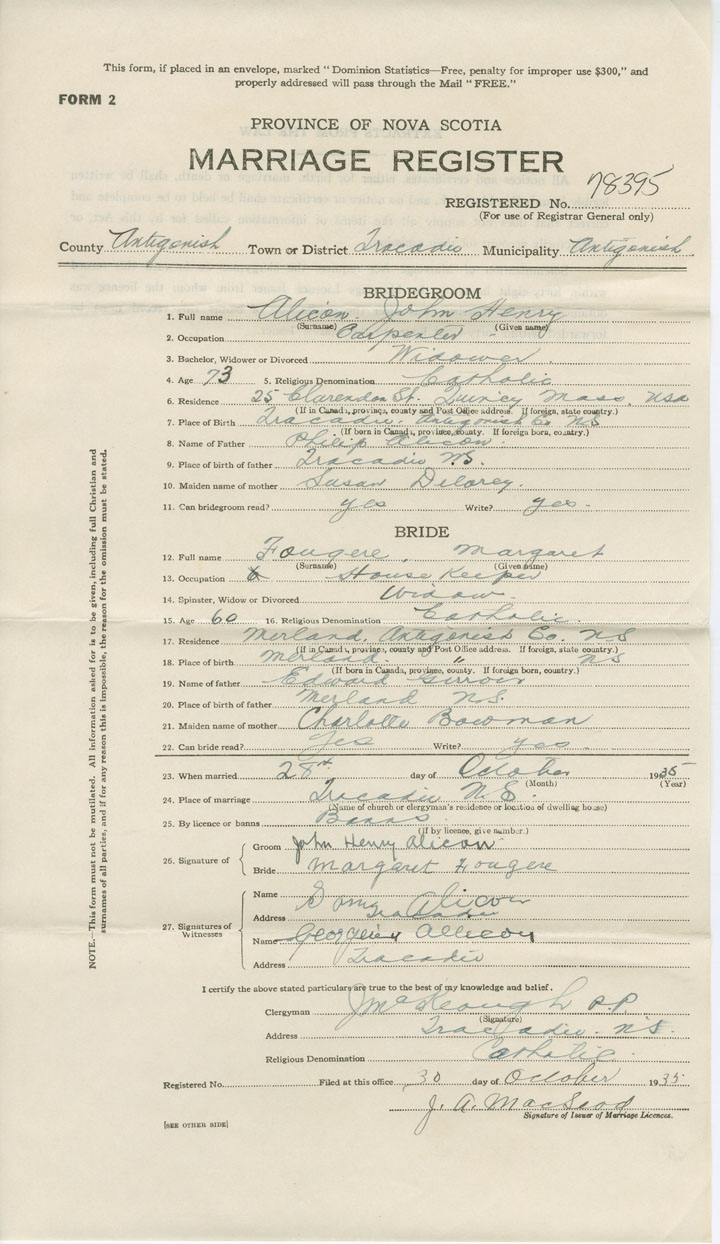 This form, if placed in an envelope, marked "Dominion Statistics—Free, penalty for improper use $300," and
properly addressed will pass through the Mail "FREE."
FORM 2
PROVINCE OF NOVA SCOTIA
MARRIAGE REGISTER
REGISTERED No. 78395
(For use of Registrar General only)
County Antigonish Town or District Tracadie Municipality Antigonish
BRIDEGROOM
1. Full name Alicon John Henry
(Surname) (Given name)
2. Occupation Carpenter
3. Bachelor, Widower or Divorced Widower
4. Age 73 5. Religious Denomination Catholic
6. Residence 25 Clarendon St. Quincy Mass. USA
(If in Canada, province, county and Post Office address. If foreign, state country.)
7. Place of Birth Tracadie Antigonish Co NS
(If born in Canada, province, county. If foreign born, country.)
8. Name of Father Philip Alicon
9. Place of birth of father Tracadie N.S.
10. Maiden name of mother Susan Delorey.
11. Can bridegroom read? yes Write? yes.
BRIDE
12. Full name Fougere, Margaret
(Surname) (Given name)
13. Occupation House Keeper
14. Spinster, Widow or Divorced Widow
15. Age 60 16. Religious Denomination Catholic.
17. Residence Merland, Antigonish Co. NS
(If in Canada, province, county and Post Office address. If foreign, state country.)
18. Place of birth Merland. " NS
(If born in Canada, province, county. If foreign born, country.)
19. Name of father Edward
20. Place of birth of father Merland N.S.
21. Maiden name of mother Charlotte Bowman
22. Can bride read? Yes Write? yes.
23. When married 28th day of October 1935
(Month) (Year)
24. Place of marriage Tracadie N.S.
(Name of church or clergyman's residence or location of dwelling house)
25. By licence or banns Banns
(If by licence, give number.)
26. Signature of
Groom John Henry Alicon
Bride Margaret Fougere
27. Signatures of
Witnesses
Name Alicon
Address Tracadie
Name Allicon
Address Tracadie
I certify the above stated particulars are true to the best of my knowledge and belief.
Clergyman J McKeough P.P.
(Signature)
Address Tracadie. N.S.
Religious Denomination Catholic
Registered No. Filed at this office 30 day of October 1935
J. A. MacLeod
Signature of Issuer of Marriage Licences.
[SEE OTHER SIDE]
NOTE.—This form must not be mutilated. All information asked for is to be given, including full Christian and
surnames of all parties, and if for any reason this is impossible, the reason for the omission must be stated.